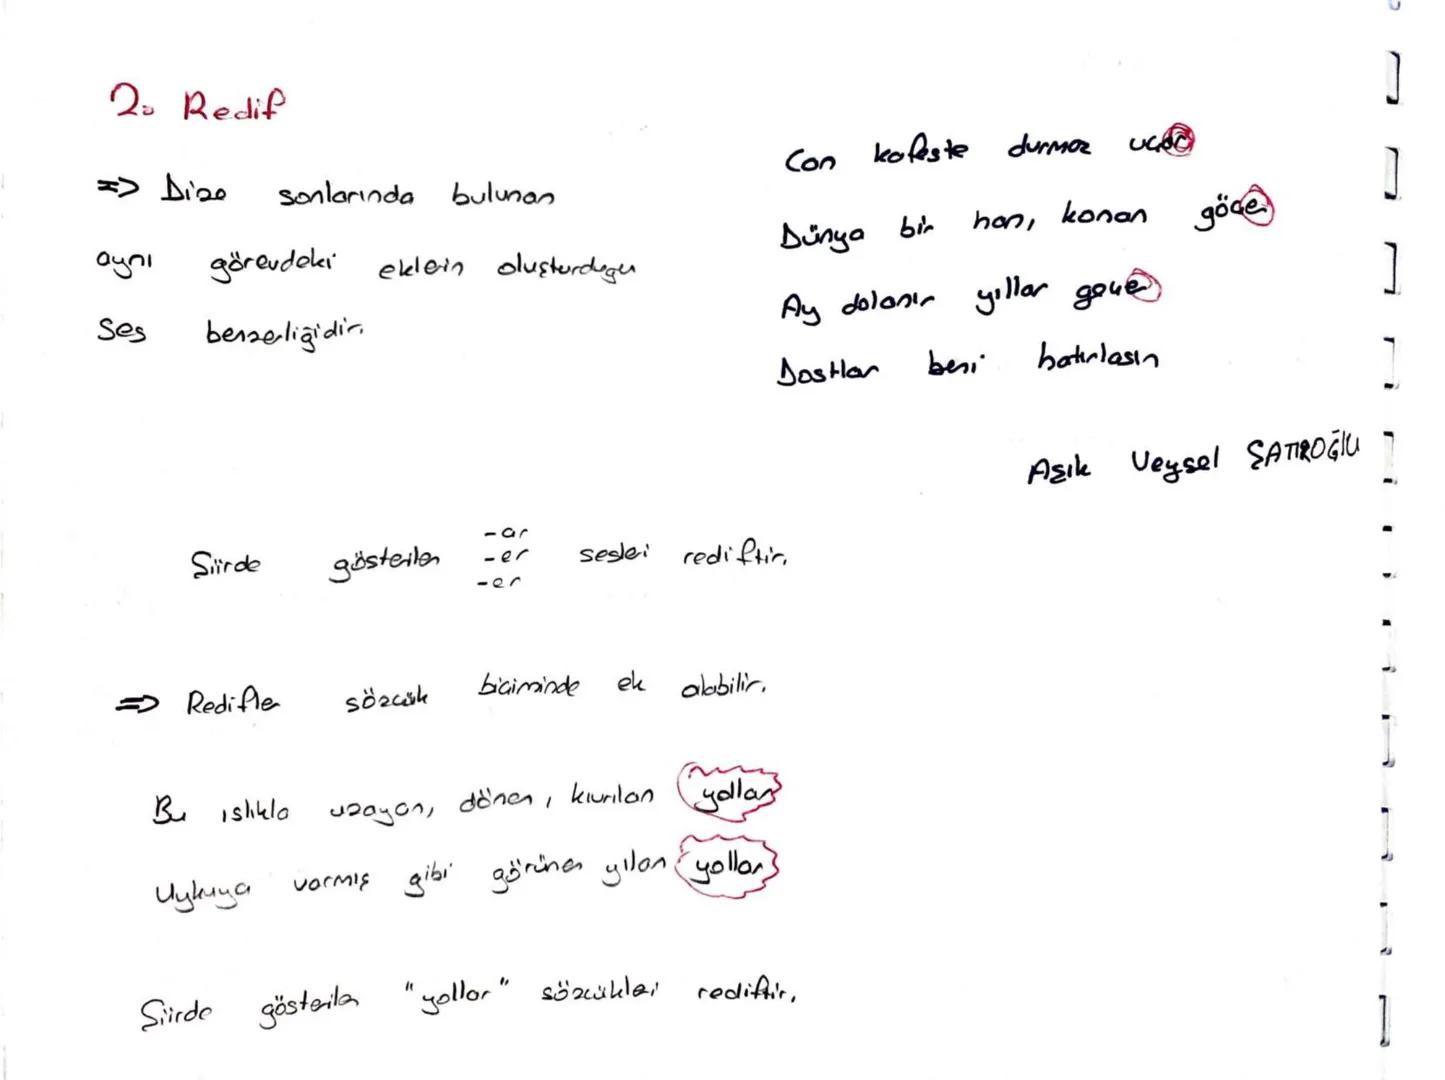 2. Redif
=> Dize sonlarında bulunan
aynı görevdeki eklerin oluşturduğu
ses benzerliğidir.
Can kafeste durmaz uçar
Dünya bir han, konan göçer
Ay dolanır yıllar geçer
Dostlar beni hatırlasın
Aşık Veysel ŞATIROĞLU
Şiirde gösterilen -ar -er -er sesleri rediftir.
=> Redifler sözcük biçiminde ek alabilir.
Bu ıslıkla uzayan, dönen, kıvrılan yollar
Uykuya varmış gibi görünen yılan yollar
Şiirde gösterilen "yollar" sözcükleri rediftir.